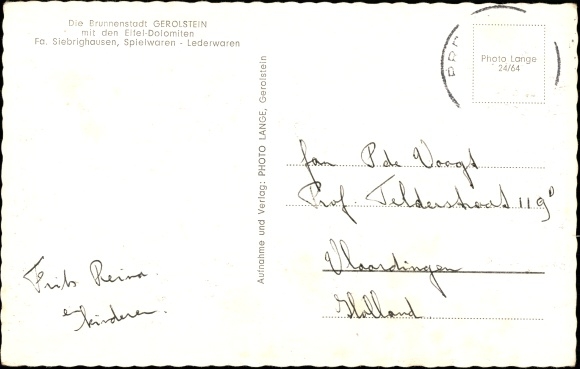 Die Brunnenstadt GEROLSTEIN
mit den Eifel-Dolomiten
Fa. Siebrighausen, Spielwaren - Lederwaren
Aufnahme und Verlag: PHOTO LANGE, Gerolstein
Photo Lange
24/64
Fam P de Voogt
Prof. Telderstraat 119
Vlaardingen
Holland
Frits Reina
kinderen.